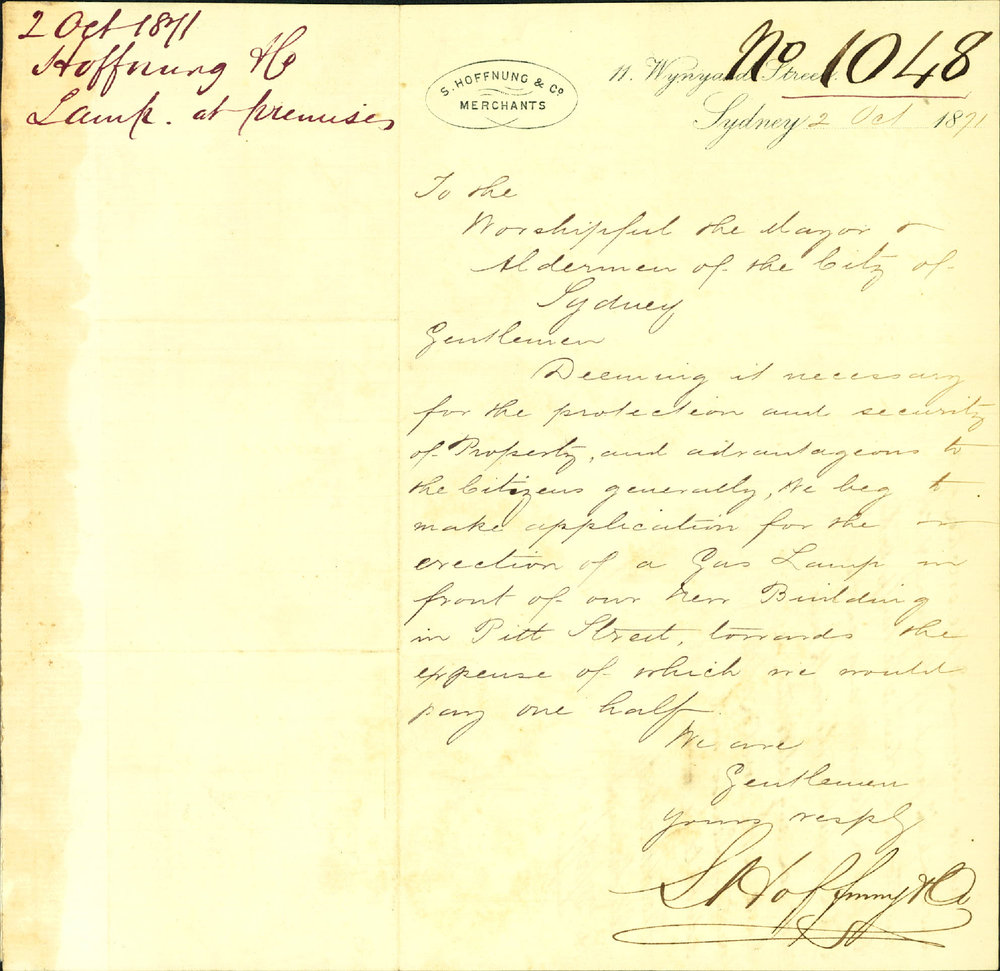 2 Oct 1871
Hoffnung & Co
Lamp. at premises
No 1048
S. HOFFNUNG & Co
MERCHANTS
11. Wynyard Street.
Sydney 2 Oct 1871
To the
Worshipful the Mayor &
Aldermen of the City of
Sydney
Gentlemen
Deeming it necessary
for the protection and security
of Property, and advantageous to
the Citizens generally, We beg to
make application for the
erection of a Gas Lamp in
front of our New Building
in Pitt Street, towards the
expense of which we would
pay one half.
We are
Gentlemen
Yours resply
S Hoffnung & Co